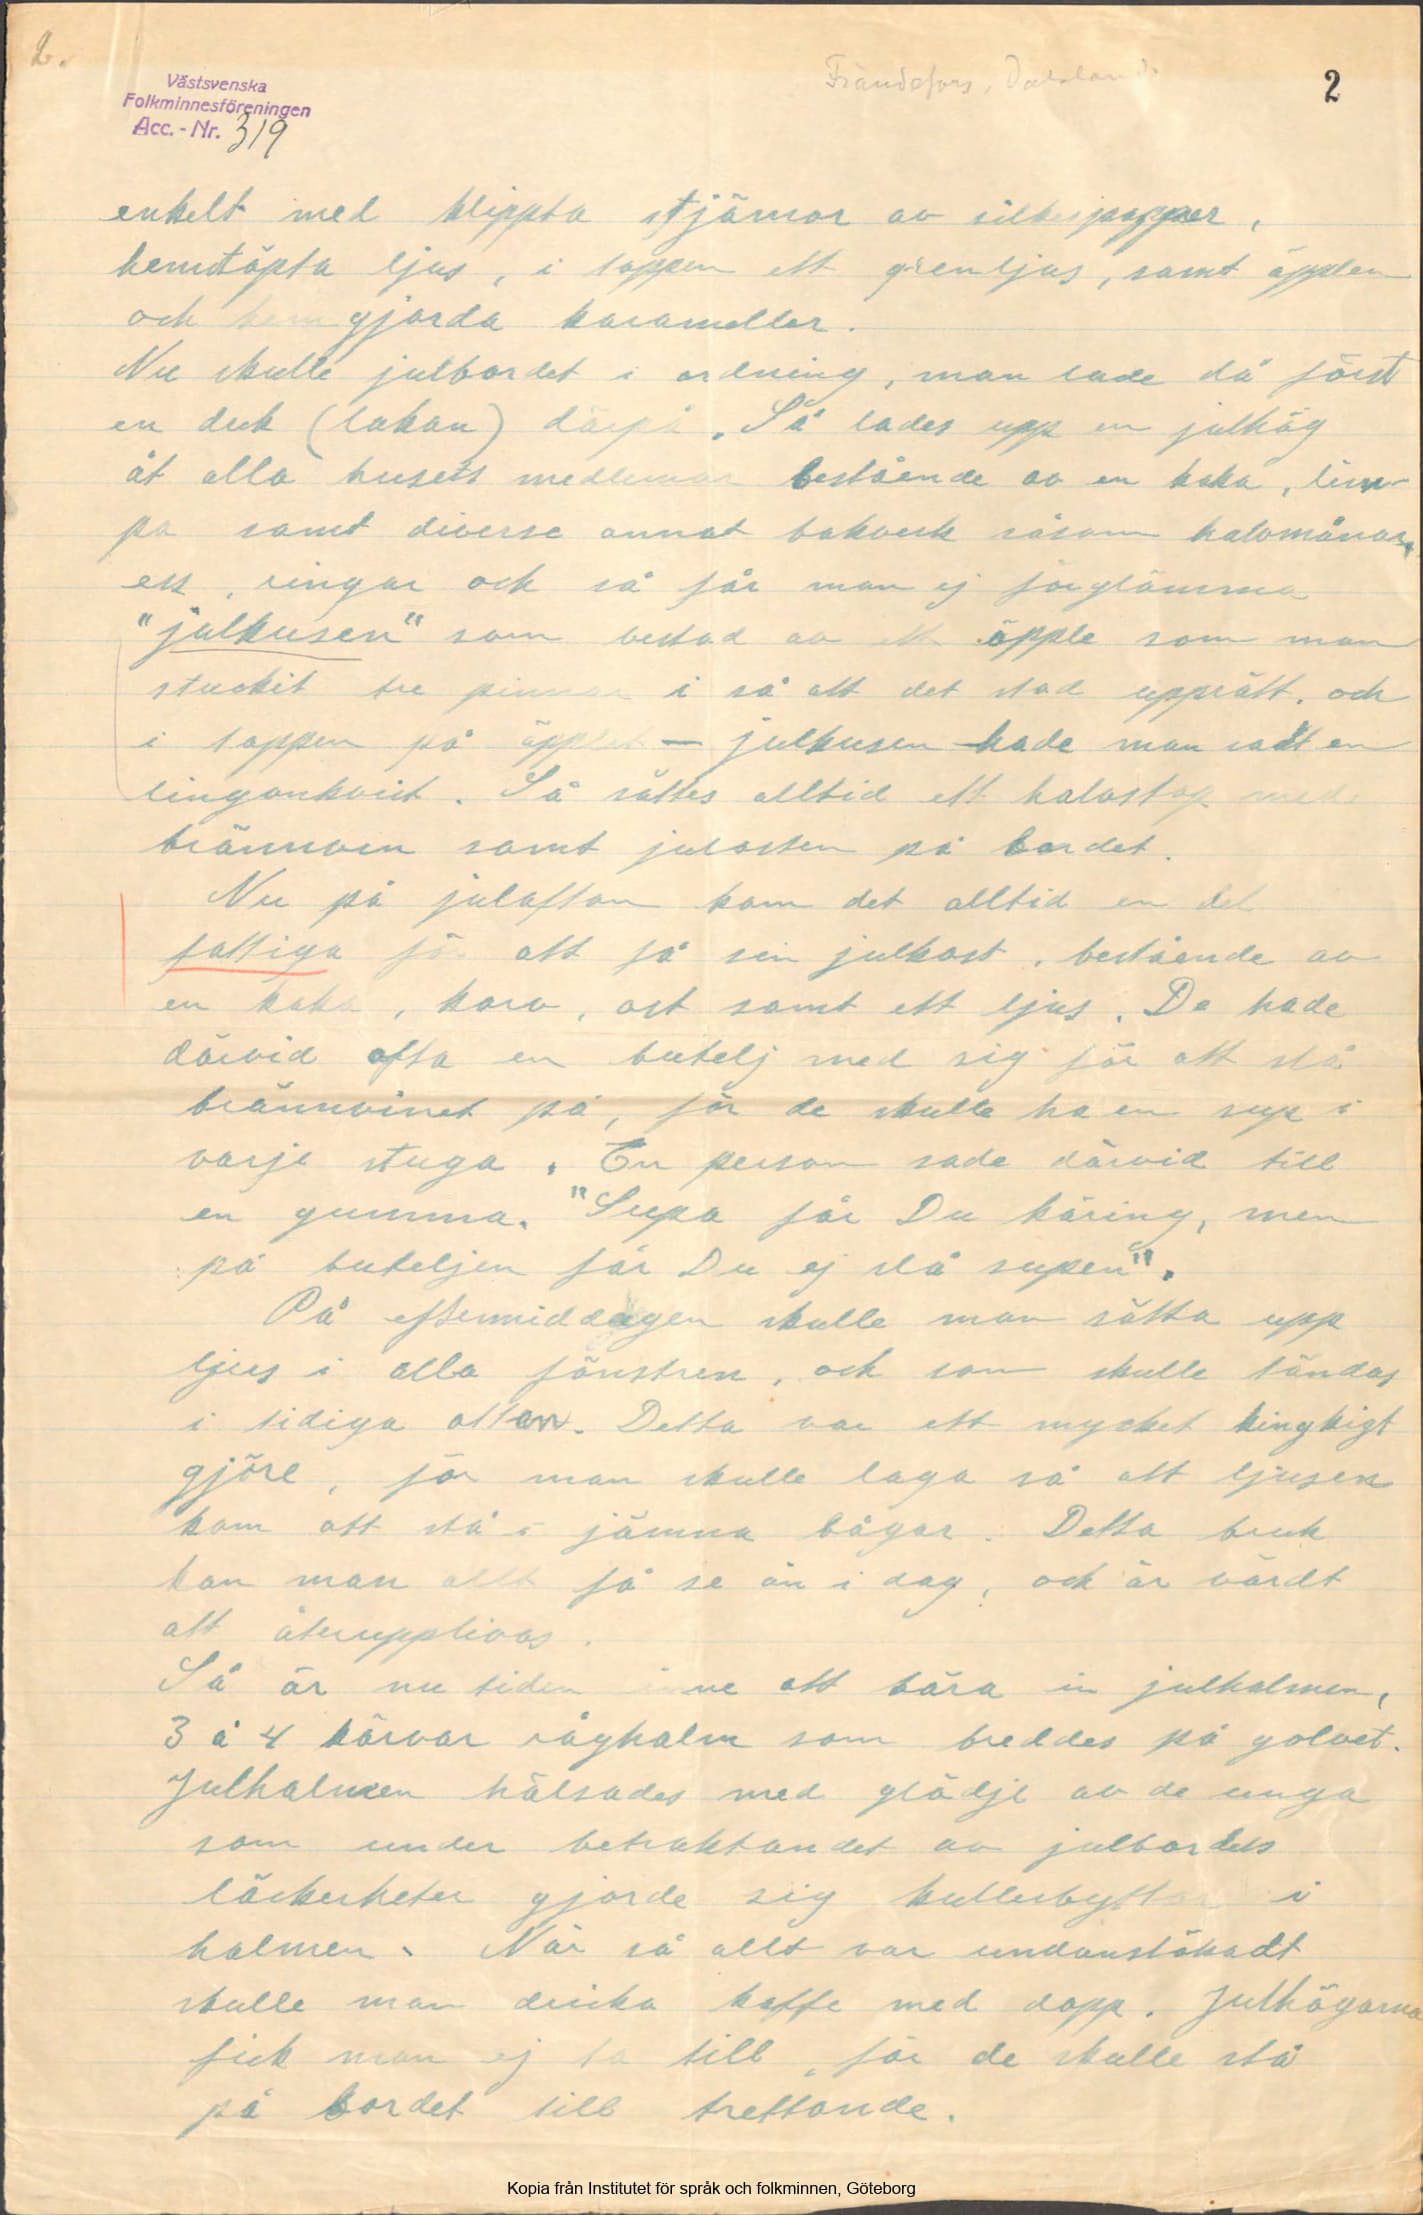 2.
Västsvenska
Folkminnesföreningen
Acc. - Nr. 319
Frändefors, Dalsland.
2
enkelt med klippta stjärnor av silkespapper,
hemstöpta ljus, i toppen ett grenljus, samt äpplen
och hemgjorda karameller.
Nu skulle julbordet i ordning, man lade då först
en duk (lakan) därpå. Så lades upp en julhög
åt alla husets medlemmar bestående av en kaka, lim-
pa samt diverse annat bakverk såsom halvmånar,
ess, ringar och så får man ej förglömma
"julkusen" som bestod av ett äpple som man
stuckit tre pinnar i så att det stod upprätt, och
i toppen på äpplet — julkusen hade man satt en
lingonkvist. Så sattes alltid ett halvstop med
brännvin samt julosten på bordet.
Nu på julafton kom det alltid en del
fattiga för att få sin julkost, bestående av
en kaka, korv, ost samt ett ljus. De hade
därvid ofta en butelj med sig för att slå
brännvinet på, för de skulle ha en sup i
varje stuga. En person sade därvid till
en gumma. "Supa får Du käring, men
på buteljen får Du ej slå supen".
På eftermiddagen skulle man sätta upp
ljus i alla fönstren, och som skulle tändas
i tidiga ottan. Detta var ett mycket kingkigt
gjöre, för man skulle laga så att ljusen
kom att stå i jämna bågar. Detta bruk
kan man allt få se än i dag, och är värdt
att återupplivas.
Så är nu tiden inne att bära in julhalmen,
3 à 4 kärvar råghalm som breddes på golvet.
Julhalmen hälsades med glädje av de unga
som under betraktandet av julbordets
läckerheter gjorde sig kullerbyttor i
halmen. När så allt var undanstökadt
skulle man dricka kaffe med dopp. Julhögarna
fick man ej ta till, för de skulle stå
på bordet till trettonde.
Kopia från Institutet för språk och folkminnen, Göteborg